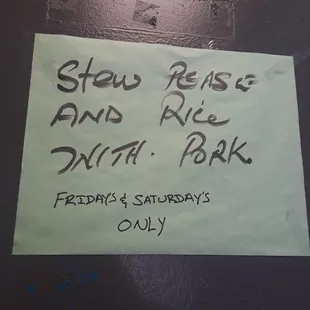 Stew PEASE
AND Rice
WITH. PORK.
FRIDAY'S & SATURDAY'S
ONLY